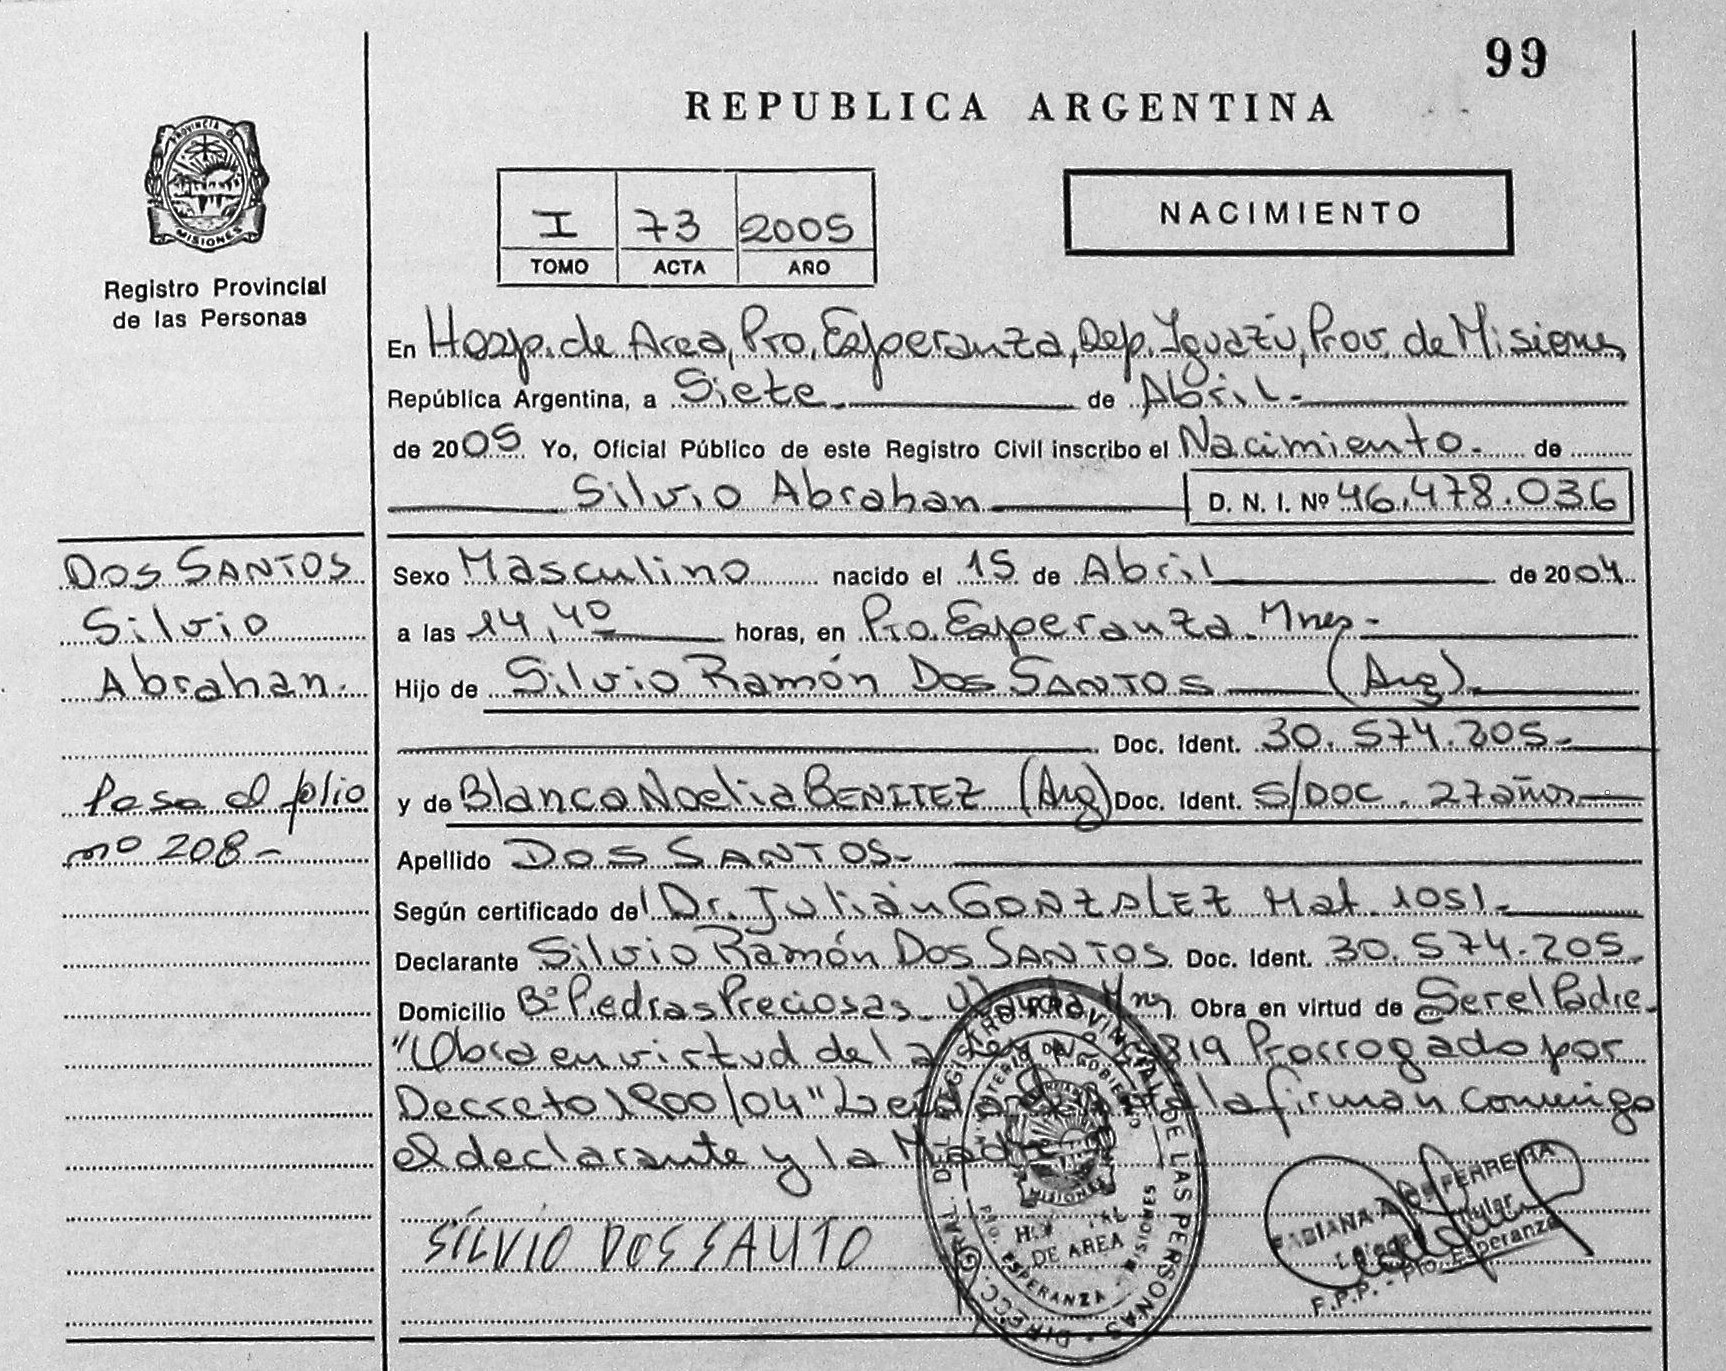 99
REPUBLICA ARGENTINA
PROVINCIA D
MISIONES
Registro Provincial
de las Personas
I 73 2005
TOMO ACTA AÑO
NACIMIENTO
En Hosp. de Area, Pto. Esperanza, Dep. Iguazú, Prov. de Misiones
República Argentina, a Siete de Abril.
de 2005 Yo, Oficial Público de este Registro Civil inscribo el Nacimiento. de
Silvio Abrahan D. N. I. Nº 46.478.036
DOS SANTOS
Silvio
Abrahan.
Pasa al folio
nº 208
Sexo Masculino nacido el 15 de Abril de 2004
a las 14,40 horas, en Pto. Esperanza. Mnes.
Hijo de Silvio Ramón DOS SANTOS (Arg)
Doc. Ident. 30.574.205
y de Blanca Noelia BENITEZ (Arg) Doc. Ident. S/DOC. 27 años
Apellido DOS SANTOS
Según certificado del Dr. Julián GONZALEZ Mat. 1051
Declarante Silvio Ramón DOS SANTOS Doc. Ident. 30.574.205
Domicilio Bº Piedras Preciosas Wanda Mnes Obra en virtud de Ser el Padre
"Obra en virtud de la 819 Prorrogado por
Decreto 1900/04" la firman conmigo
el declarante y la Madre
SILVIO DOS SAUTO
DIRECC. GRAL. DEL REGISTRO PROVINCIAL DE LAS PERSONAS
MINISTERIO DE GOBIERNO
MISIONES
DE AREA
PTO. ESPERANZA - MISIONES
FABIANA A. DE FERREIRA
Titular
F.P.P. - Pto. Esperanza